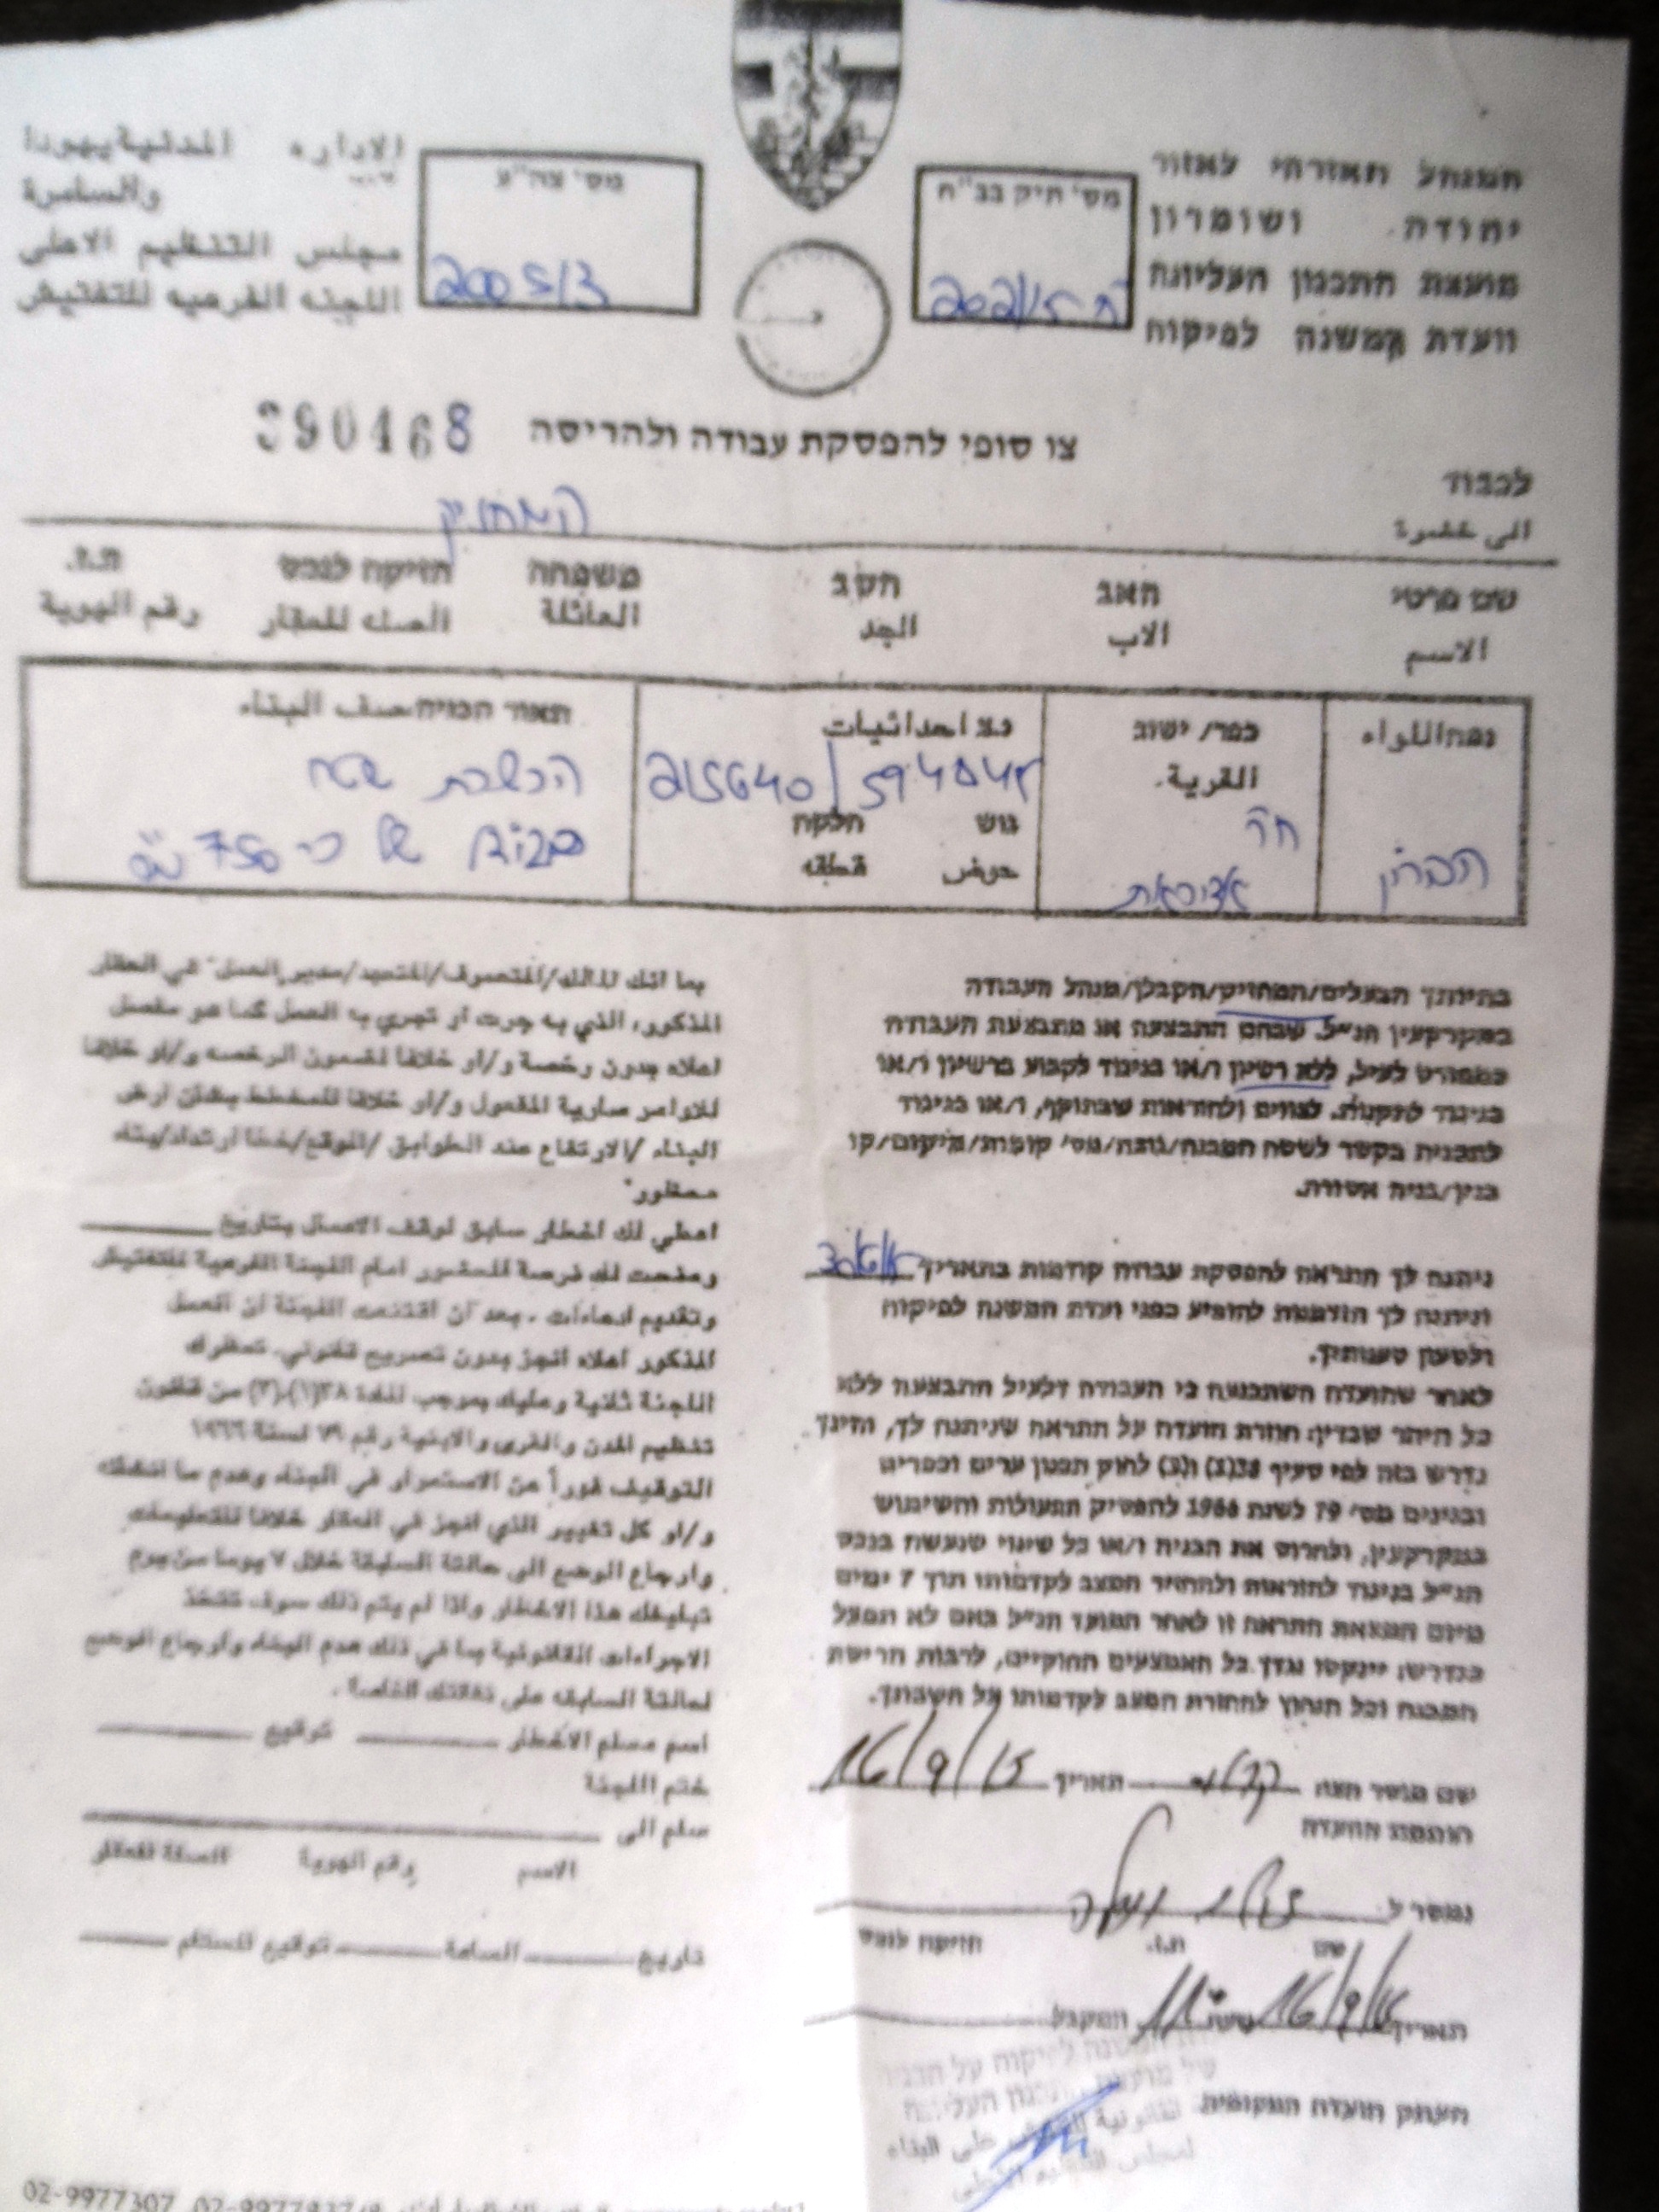 המנהל האזרחי לאזור
יהודה ושומרון
מועצת התכנון העליונה
וועדת המשנה לפיקוח
מס' תיק בב"ח
ח 202/15
מס' צה"ע
2005/3
الاداره المدنية يهودا
والسامرة
مجلس التنظيم الاعلى
اللجنه الفرعيه للتفتيش
צו סופי להפסקת עבודה ולהריסה 390468
לכבוד
الى حضرة
המחזיק
שם פרטי האב הסב משפחה זיקה לנכס ת.ז.
الاسم الاب الجد العائلة الصلة للعقار رقم الهوية
נפה اللواء
חברון
כפר/ ישוב
القرية
ח'ר
נ.צ احداثيات
215640/594545
גוש חלקה
حوض قطعه
תאור הבניה صف البناء
הכשרת שטח
של כ- 750 מ"ר
בהיותך הבעלים/המחזיק/הקבלן/מנהל העבודה
במקרקעין הנ"ל. שבהם התבצעה או מתבצעת העבודה
כמפורט לעיל, ללא רשיון ו/או בניגוד לקבוע ברשיון ו/או
בניגוד לתקנות. לצווים ולהוראות שבתוקף, ו/או בניגוד
לתכנית בקשר לשטח המבנה/גובה/מס' קומות/מיקום/קו
בנין/בניה אסורה.
ניתנה לך התראה להפסקת עבודה קודמת בתאריך 30/6/15
וניתנה לך הזדמנות להופיע בפני ועדת המשנה לפיקוח
ולטעון טענותיך.
לאחר שהועדה השתכנעה כי העבודה דלעיל התבצעה ללא
כל היתר שבדין: חוזרת הועדה על התראה שניתנה לך, והינך
נדרש בזה לפי סעיף 38(1) ו(2) לחוק תכנון ערים וכפרים
ובנינים מס' 79 לשנת 1966 להפסיק הפעולות והשימוש
במקרקעין, ולהרוס את הבניה ו/או כל שינוי שנעשה בנכס
הנ"ל בניגוד להוראות ולהחזיר המצב לקדמותו תוך 7 ימים
מיום המצאת התראה זו לאחר המועד הנ"ל באם לא תפעל
כנדרש: יינקטו נגדך כל האמצעים החוקיים, לרבות הריסת
המבנה וכל הנחוץ להחזרת המצב לקדמותו על חשבונך.
שם מוסר הצו תאריך 16/9/15
חותמת הוועדה
נמסר ל
שם ת.ז. זיקה לנכס
תאריך 16/9/15 שעה 11 המקבל
העתק הועדה המקומית
بما انك المالك/المتصرف/المتعهد/مدير العمل في العقار
المذكور، الذي به جرت او تجري به العمل كما هو مفصل
اعلاه بدون رخصة و/او خلافا لمضمون الرخصه و/او خلافا
للاوامر سارية المفعول و/او خلافا للمخطط بشأن ارض
البناء /الارتفاع عدد الطوابق /الموقع/خط ارتداد/بناء
محظور"
اعطي لك اخطار سابق لوقف الاعمال بتاريخ
ومنحت لك فرصة للحضور امام اللجنة الفرعية للتفتيش
وتقديم ادعاءات . بعد أن اقتنعت اللجنة ان العمل
المذكور اعلاه انجز بدون تصريح قانوني. تخطرك
اللجنة ثانية وعليك بموجب المادة ٣٨(١)،(٢) من قانون
تنظيم المدن والقرى والابنية رقم ٧٩ لسنة ١٩٦٦
التوقيف فوراً عن الاستمرار في البناء وهدم ما انشئ
و/او كل تغيير الذي انجز في العقار خلافا للتعليمات
وارجاع الوضع الى حالته السابقة خلال ٧ يوما من يوم
تبليغك هذا الاخطار واذا لم يتم ذلك سوف تتخذ
الاجراءات القانونية بما في ذلك هدم البناء وارجاع الوضع
لحالته السابقه على نفقتك الخاصة .
اسم مسلم الاخطار توقيع
ختم اللجنة
سلم الى
الاسم رقم الهوية الصلة للعقار
تاريخ الساعة توقيع المستلم
02-9977307